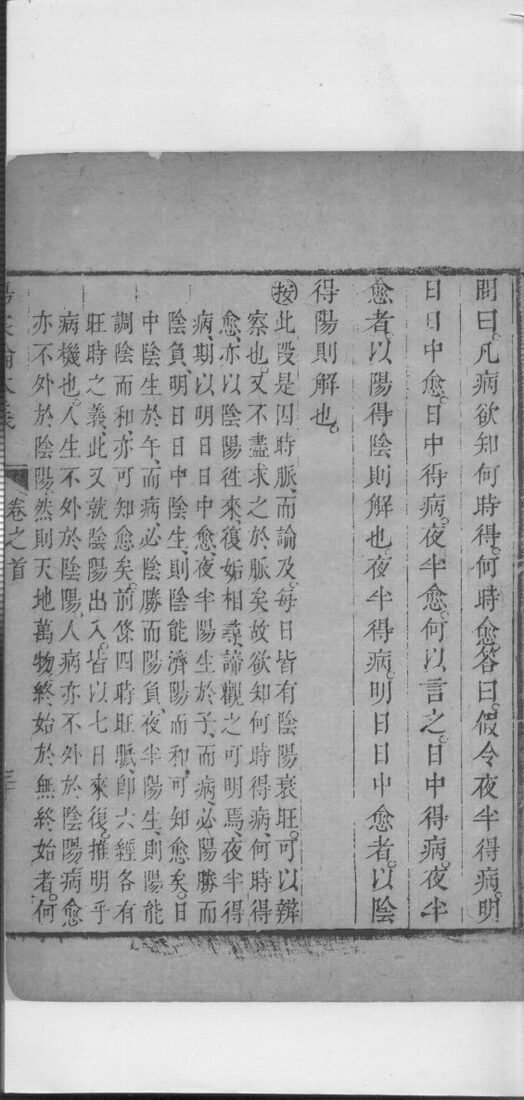 問曰。凡病欲知何時得。何時愈。答曰。假令夜半得病。明
日日中愈。日中得病。夜半愈。何以言之。日中得病。夜半
愈者。以陽得陰則解也。夜半得病。明日日中愈者。以陰
得陽則解也。
按此段是因時脈。而論及每日皆有陰陽衰旺。可以辨
察也。又不盡求之於脈矣。故欲知何時得病。何時得
愈。亦以陰陽徃來。復姤相尋。諦觀之可明焉。夜半得
病。期以明日日中愈。夜半陽生於子。而病。必陽勝而
陰負。明日日中陰生。則陰能濟陽而和。可知愈矣。日
中陰生於午。而病。必陰勝而陽負。夜半陽生。則陽能
調陰而和。亦可知愈矣。前條四時旺脈。卽六經各有
旺時之義。此又就陰陽出入。皆以七日來復。推明乎
病機也。人生不外於陰陽。人病亦不外於陰陽。病愈
亦不外於陰陽。然則天地萬物。終始於無終始者。何
卷之首